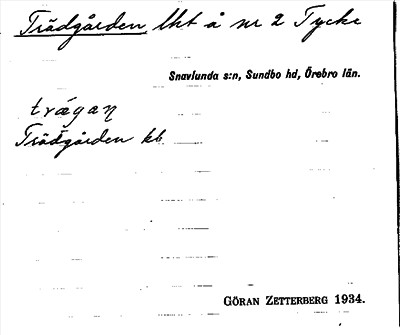 Trädgården, lht å nr 2 Tycke
Snavlunda s:n, Sundbo hd, Örebro län.
trágan
Trädgården kb
GÖRAN ZETTERBERG 1934.